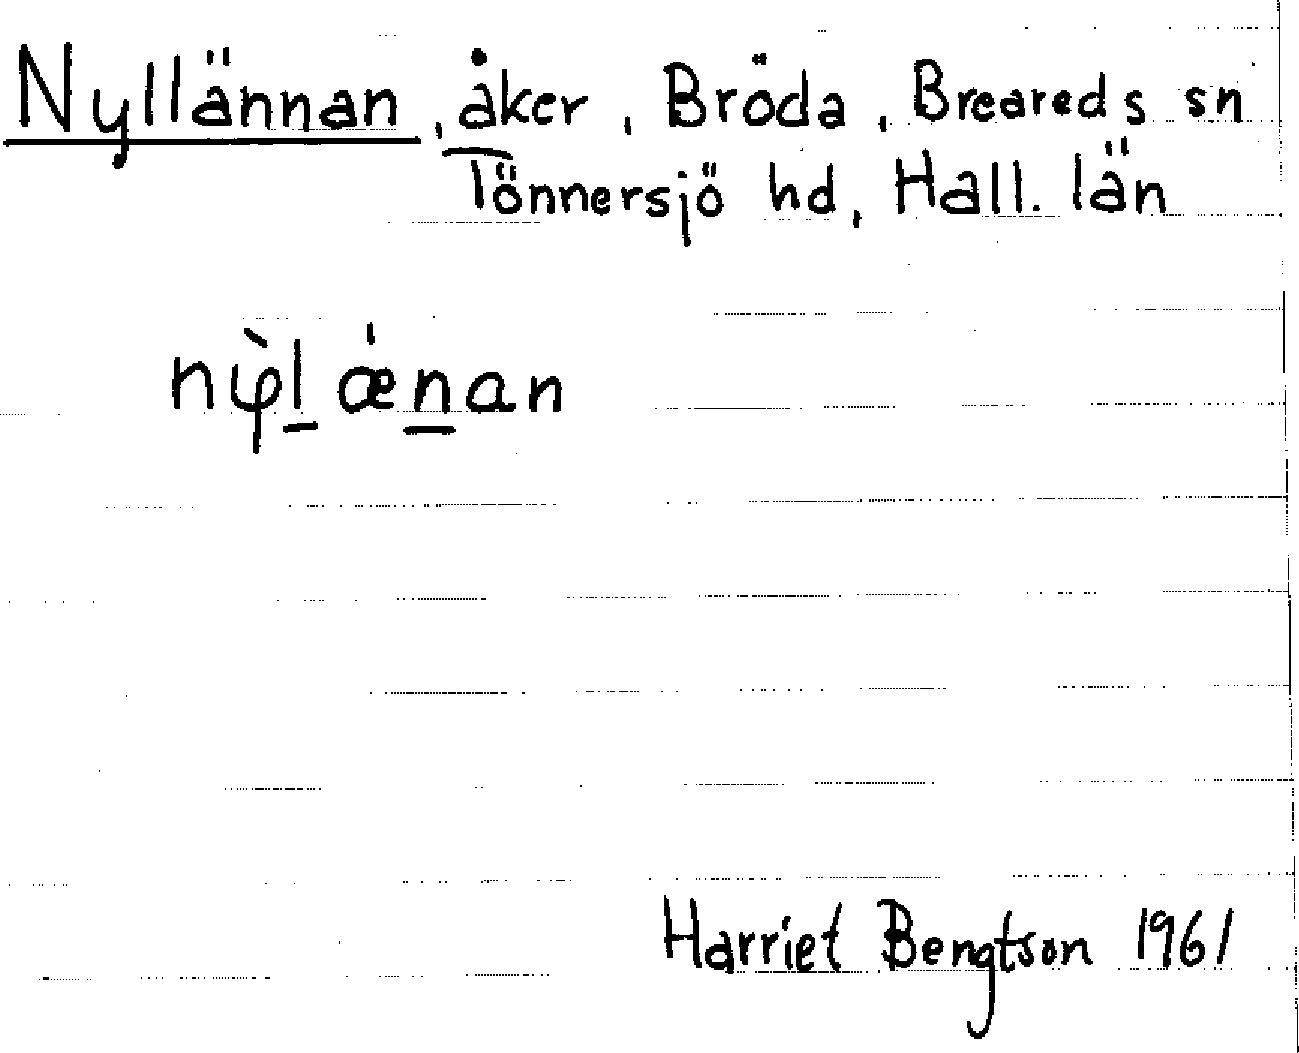 Nyllännan, åker, Bröda, Breareds sn
Tönnersjö hd, Hall. län
nφ̀l̲ æ̍n̲an
Harriet Bengtson 1961